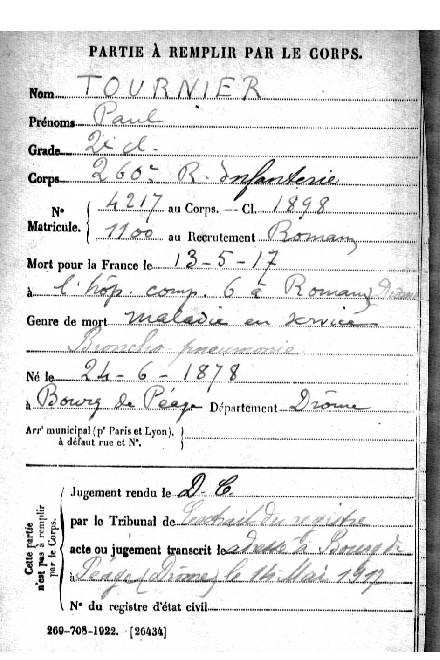 PARTIE À REMPLIR PAR LE CORPS.
Nom TOURNIER
Prénoms Paul
Grade 2e cl.
Corps 260e R. Infanterie
N° Matricule. 4217 au Corps. — Cl. 1898
1100 au Recrutement Romans
Mort pour la France le 13-5-17
à l'hôp. comp. 6 à Romans Drôme
Genre de mort maladie en service
Broncho-pneumonie
Né le 24-6-1878
à Bourg de Péage Département Drôme
Arr' municipal (p' Paris et Lyon),
à défaut rue et N°.
Cette partie n'est pas à remplir par le Corps.
Jugement rendu le D. C.
par le Tribunal de Extrait du registre
acte ou jugement transcrit le adressé à Bourg de
à Péage (Drôme) le 14 Mai 1917
N° du registre d'état civil
269-708-1922. [26434]